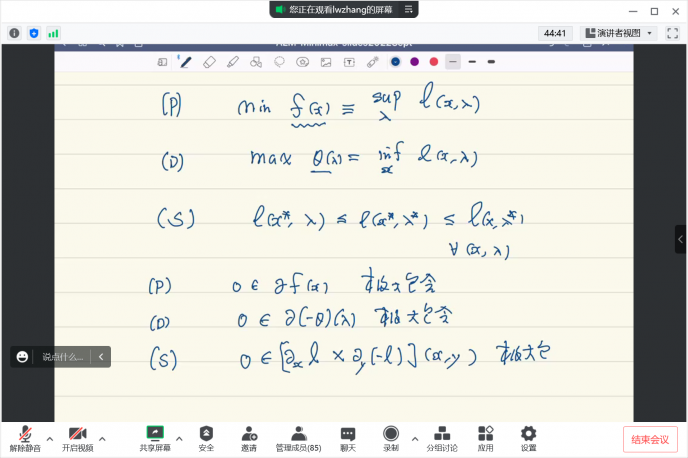 您正在观看lwzhang的屏幕
44:41 演讲者视图
(P) min f(x) ≡ sup_λ l(x,λ)
(D) max θ(λ) = inf_x l(x,λ)
(S) l(x*, λ) ≤ l(x*, λ*) ≤ l(x, λ*)
∀ (x, λ)
(P) 0 ∈ ∂f(x) 极大包含
(D) 0 ∈ ∂(-θ)(λ) 极大包含
(S) 0 ∈ [∂_x l × ∂_y(-l)](x,y) 极大包
说点什么...
解除静音 开启视频 共享屏幕 安全 邀请 管理成员(85) 聊天 录制 分组讨论 应用 设置 结束会议